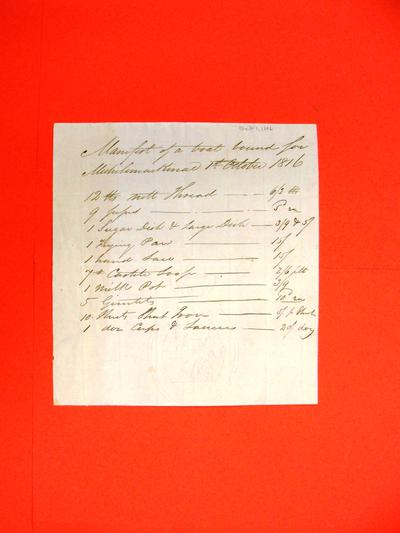 Oct 1, 1816
Manifest of a boat bound for
Michilimackinac 1st October 1816
12 lbs nett Thread — 6/3 lb
9 — —
1 Sugar Dish & Large Dish — 3/9 & 5/
1 Frying Pan — 15/
1 hand Saw — 15/
7 lb Castile Soap — 2/6 lb
1 milk Pot — 3/9
5 Gimlets —
10 Sheet Iron —
1 doz Cups & Saucers —